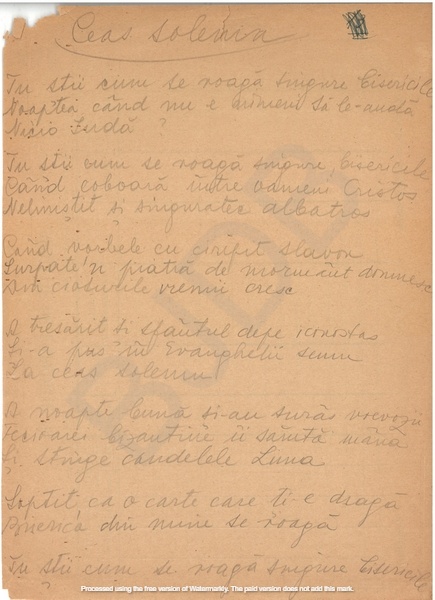 Ceas solemn
Tu știi cum se roagă singure bisericile
Noaptea când nu e nimeni să le-audă
Nicio rudă ?
Tu știi cum se roagă singure bisericile
Când coboară între oameni Cristos
Neliniștit și singuratec albatros
Când vorbele cu ciripit slavon
Surpate'n piatră de
Din ciosurile vremii cresc
A tresărit și sfântul depe iconostas
Și-a pus în Evanghelii semn
La ceas solemn
A noapte bună și-au surâs voevozii
Fecioarei bizantine îi sărută mâna
Și stinge candelele Luna
Șoptit ca o carte care ți-e dragă
Biserica din mine se roagă
Tu știi cum se roagă singure bisericile
?
Processed using the free version of Watermarkly. The paid version does not add this mark.